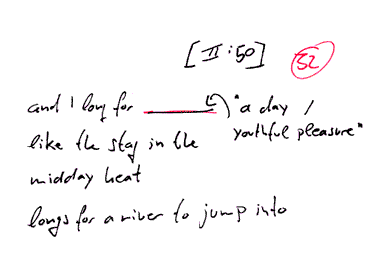 [II:50]
32
and I long for ______ "a day /
youthful pleasure"
like the stag in the
midday heat
longs for a river to jump into